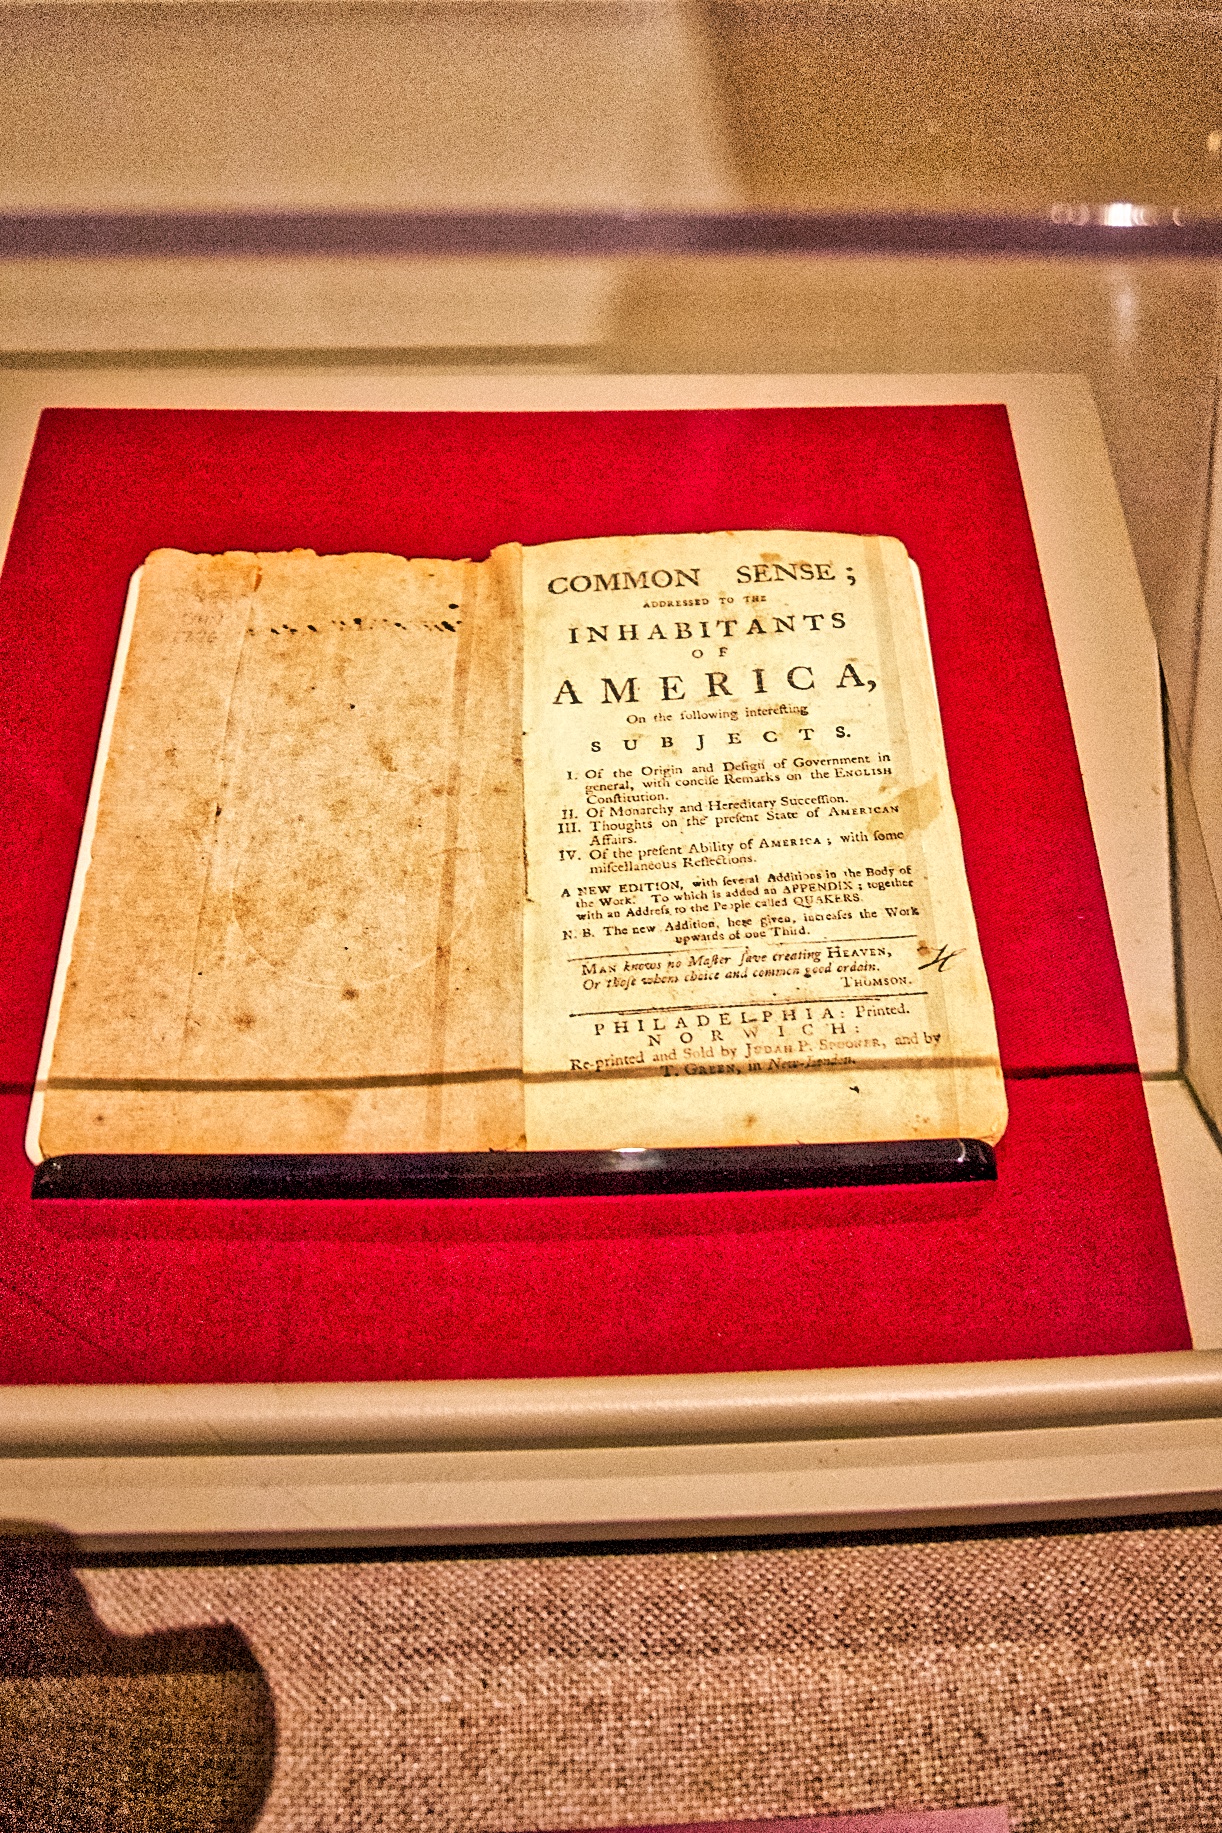 COMMON SENSE;
ADDRESSED TO THE
INHABITANTS
OF
AMERICA,
On the following intereſting
SUBJECTS.
I. Of the Origin and Deſign of Government in
general, with conciſe Remarks on the ENGLISH
Conſtitution.
II. Of Monarchy and Hereditary Succeſſion.
III. Thoughts on the preſent State of AMERICAN
Affairs.
IV. Of the preſent Ability of AMERICA; with ſome
miſcellaneous Reflections.
A NEW EDITION, with ſeveral Additions in the Body of
the Work. To which is added an APPENDIX; together
with an Addreſs to the People called QUAKERS.
N. B. The new Addition, here given, increaſes the Work
upwards of one Third.
MAN knows no Maſter ſave creating HEAVEN,
Or thoſe whom choice and common good ordain.
THOMSON.
PHILADELPHIA: Printed.
NORWICH:
Re-printed and Sold by JUDAH P. SPOONER, and by
T. GREEN, in New-London.